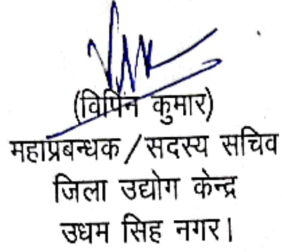 (विपिन कुमार)
महाप्रबन्धक/सदस्य सचिव
जिला उद्योग केन्द्र
उधम सिह नगर।